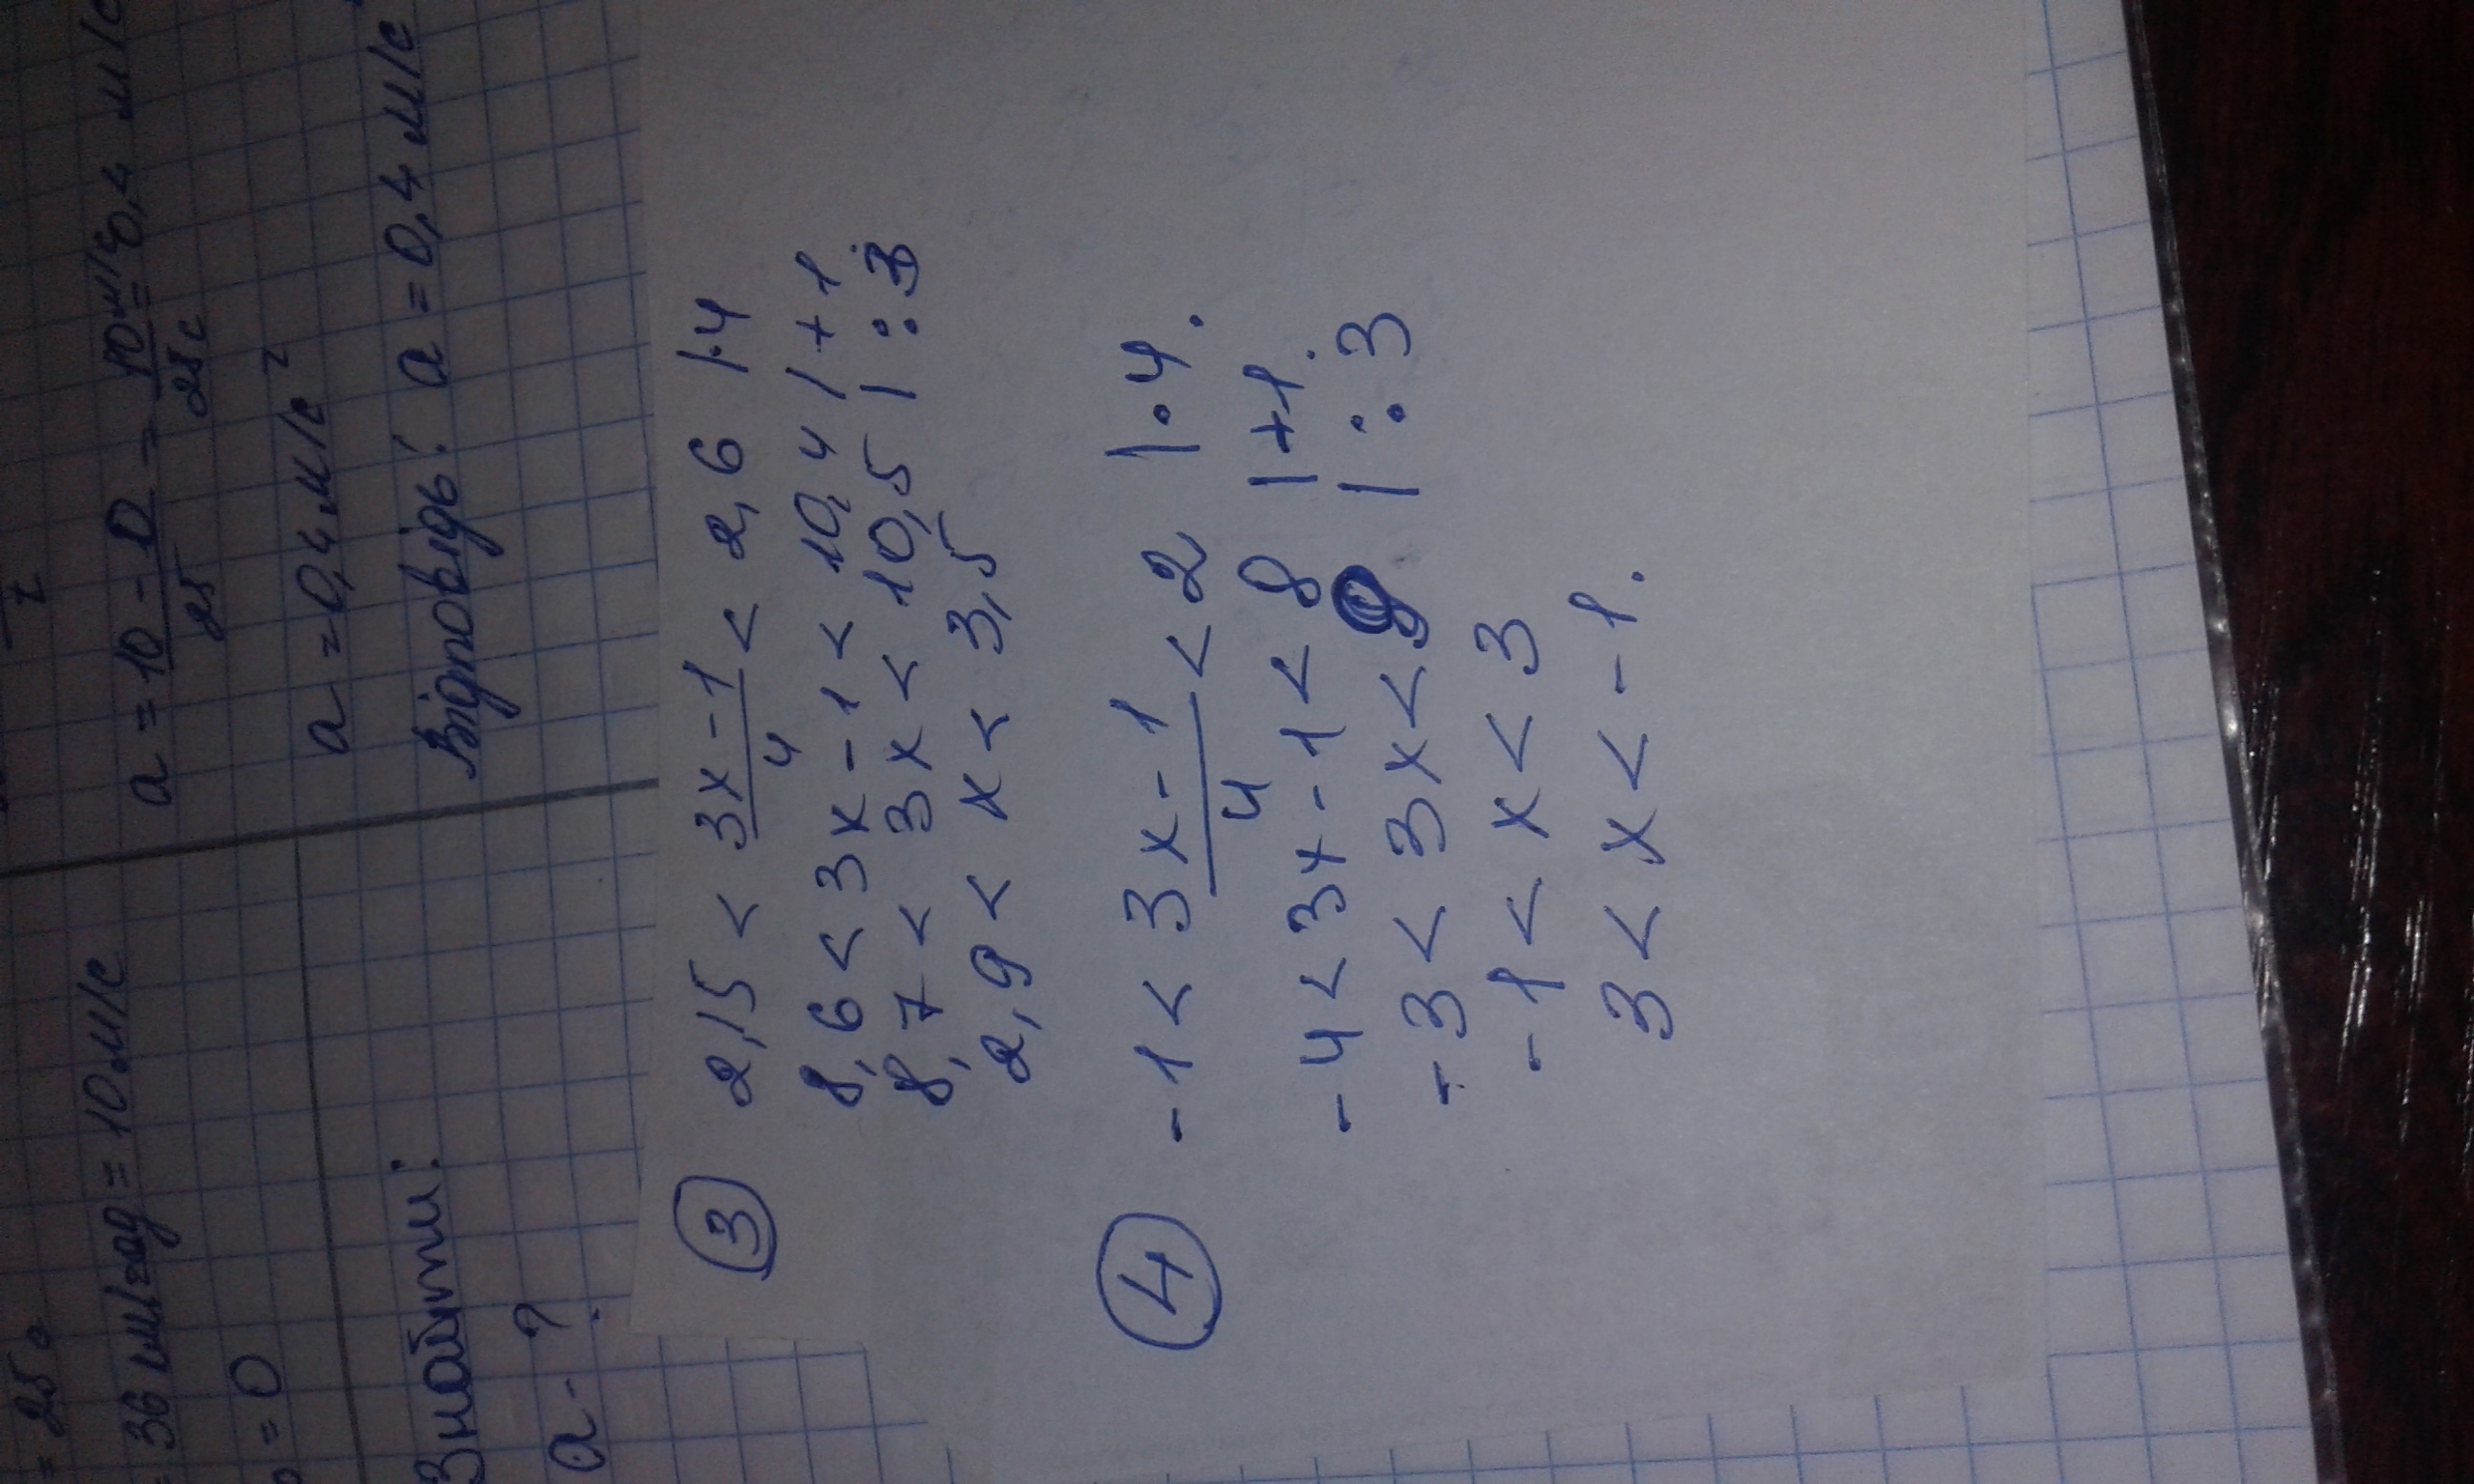 = 25 с
36 км/год = 10 м/с
= 0
Знайти:
a - ?
a = 10 - 0 / 25 = 10 м/с / 25 с = 0,4 м/с
a = 0,4 м/с²
Відповідь: a = 0,4 м/с
③ 2,15 < 3x-1 / 4 < 2,6 |·4
8,6 < 3x-1 < 10,4 | +1
8,7 < 3x < 10,5 | :3
2,9 < x < 3,5
④ -1 < 3x-1 / 4 < 2 |·4.
-4 < 3x-1 < 8 |+1.
-3 < 3x < 9 | :3
-1 < x < 3
3 < x < -1.